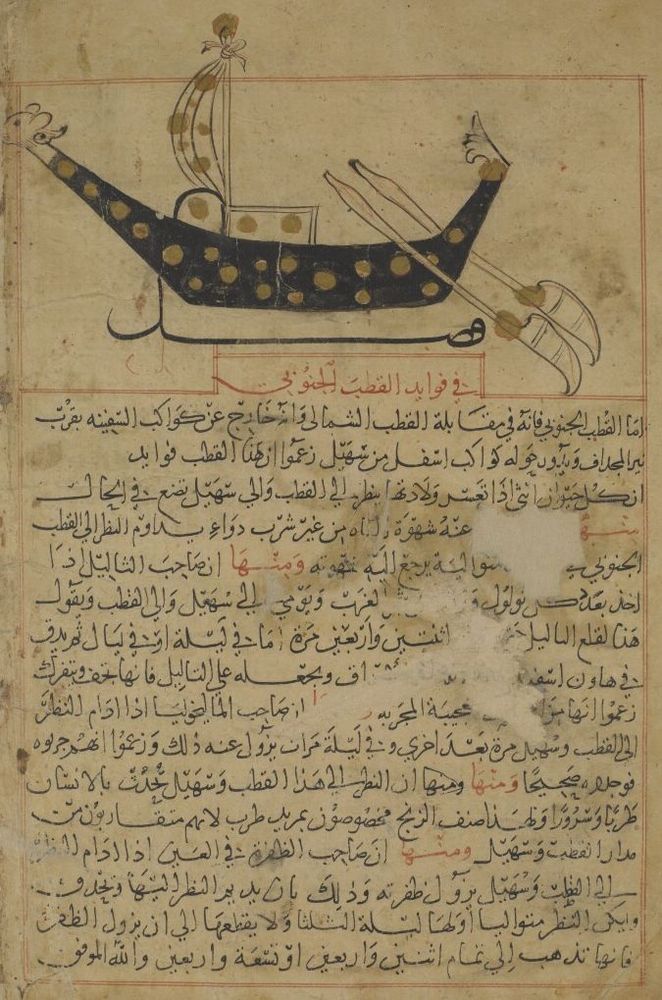 فصل
في فوايد القطب الجنوبي
اما القطب الجنوبي فانه في مقابلة القطب الشمالي وانه خارج عن كواكب السفينه بقرب
نير المجداف ويدور حوله كواكب اسفل من سهيل زعموا ان لهذا القطب فوايد
ان كل حيوان انثى اذا تعسر ولادتها ينظر الي القطب والي سهيل تضع في الحال
ومنها عنه شهوة الباه من غير شرب دواء يداوم النظر الى القطب
الجنوبي متوالية يرجع اليه شهوته ومنها ان صاحب الثاليل اذا
اخذ بعدد كل ثولول الغرب ويومي الي سهيل والي القطب ويقول
هذا لقلع الثاليل اثنتين واربعين مرة اما في ليلة او في ليال ثم يدق
في هاون ويجعله على الثاليل فانها تجف وتفرك
زعموا انها عجيبة المجربه صاحب الماليخوليا اذا ادام النظر
الى القطب وسهيل مرة بعد اخرى وفي ليلة مرات يزول عنه ذلك وزعموا انهم جربوه
فوجدوه صحيحا ومنها ومنها ان النظر الي هذا القطب وسهيل يحدث بالانسان
طربا وسرورا ولهذا صنف الزنج مخصوصون بمزيد طرب لانهم متقاربون من
مدار القطب وسهيل ومنها ان صاحب الظفرة في العين اذا ادام النظر
الي القطب وسهيل يزول ظفرته وذلك بان يديم النظر اليها ويحدق
وليكن النظر متواليا اولها ليلة الثلثا ولا يقطعها الي ان يزول الظفرة
فانها تذهب الي تمام اثنتين واربعين او تسعة واربعين والله الموفق